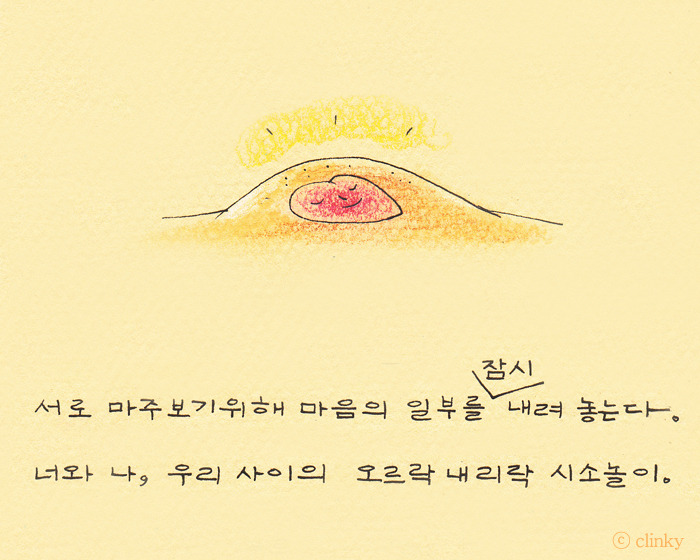 잠시
서로 마주보기위해 마음의 일부를 내려 놓는다.
너와 나, 우리 사이의 오르락 내리락 시소놀이.
ⓒ clinky